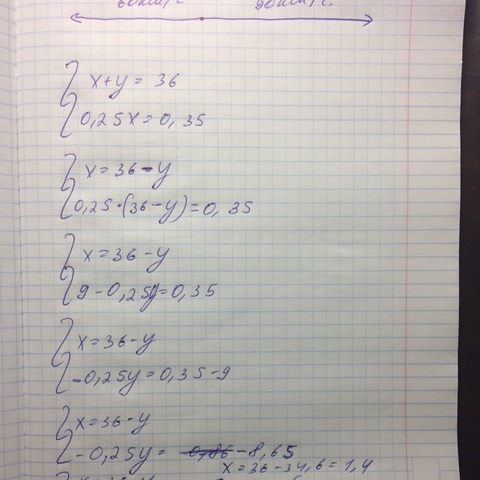 x+y=36
0,25x=0,35
x=36-y
0,25·(36-y)=0,35
x=36-y
9-0,25y=0,35
x=36-y
-0,25y=0,35-9
x=36-y
-0,25y= -8,65
x=36-34,6=1,4